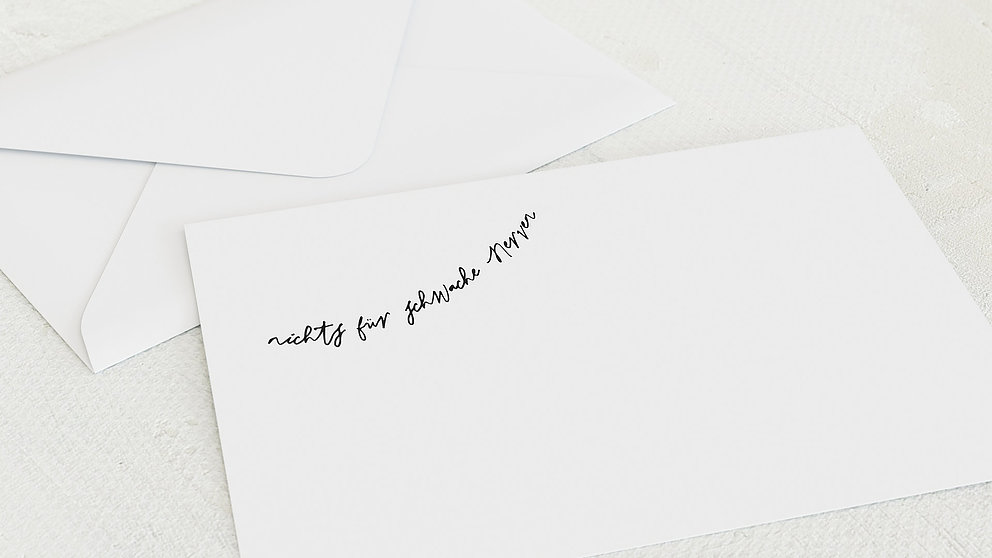 nichts für schwache Nerven